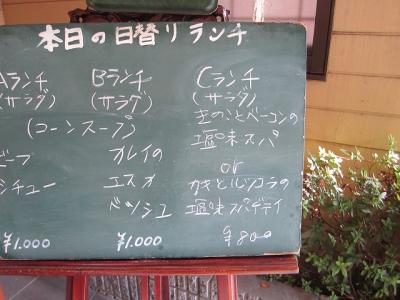 本日の日替りランチ
Aランチ
(サラダ)
Bランチ
(サラダ)
(コーンスープ)
ビーフ
シチュー
¥1.000
カレイの
エスカ
ベッシュ
¥1.000
Cランチ
(サラダ)
きのことベーコンの
塩味スパ
or
カキとルッコラの
塩味スパゲティ
¥800